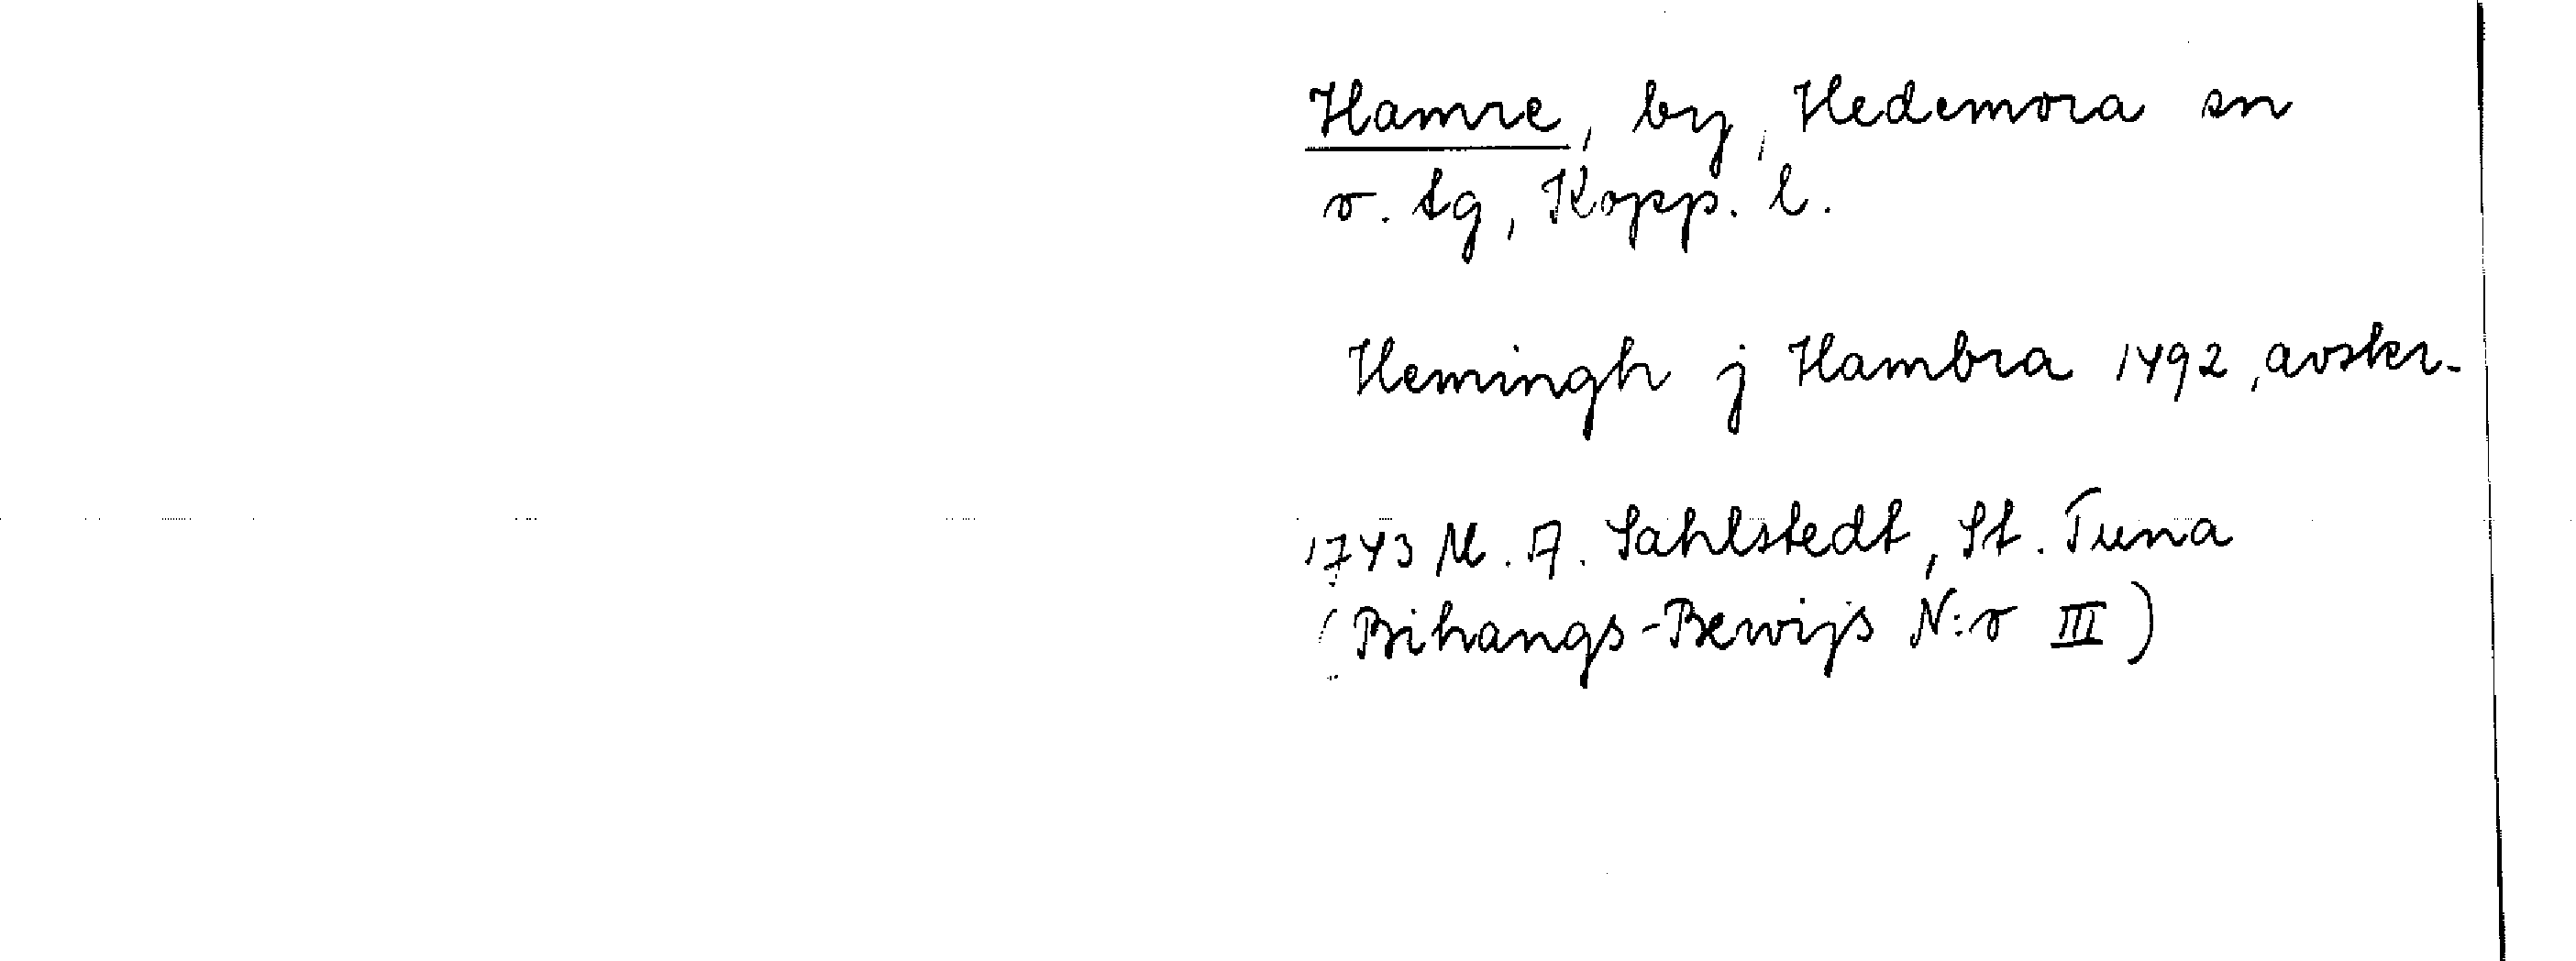 Hamre, by, Hedemora sn
o. tg, Kopp. l.
Hemingh j Hambra 1492, avskr.
1743 M. A. Sahlstedt, St. Tuna
(Bihangs-Bewijs N:o III)